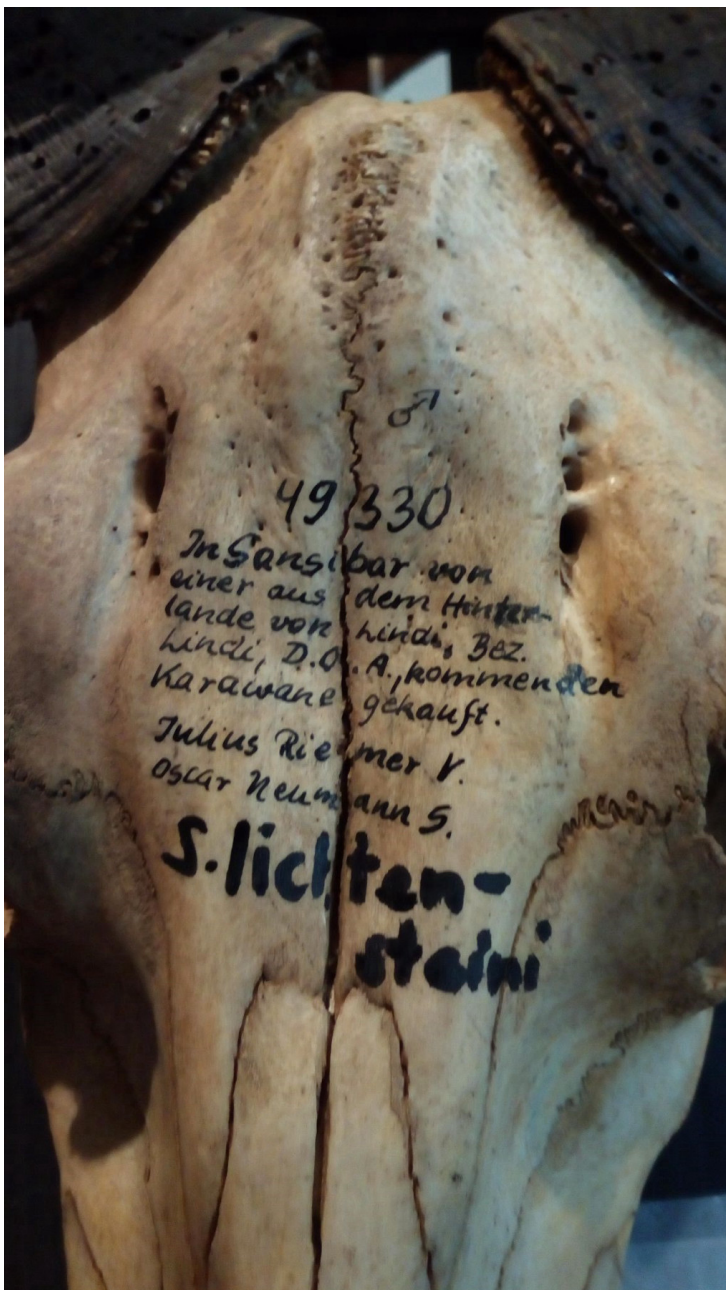 ♂
49330
In Sansibar von
einer aus dem Hinter-
lande von Lindi, Bez.
Lindi, D.O.A., kommenden
Karawane gekauft.
Julius Riemer V.
Oscar Neumann S.
S. lichten-
steini